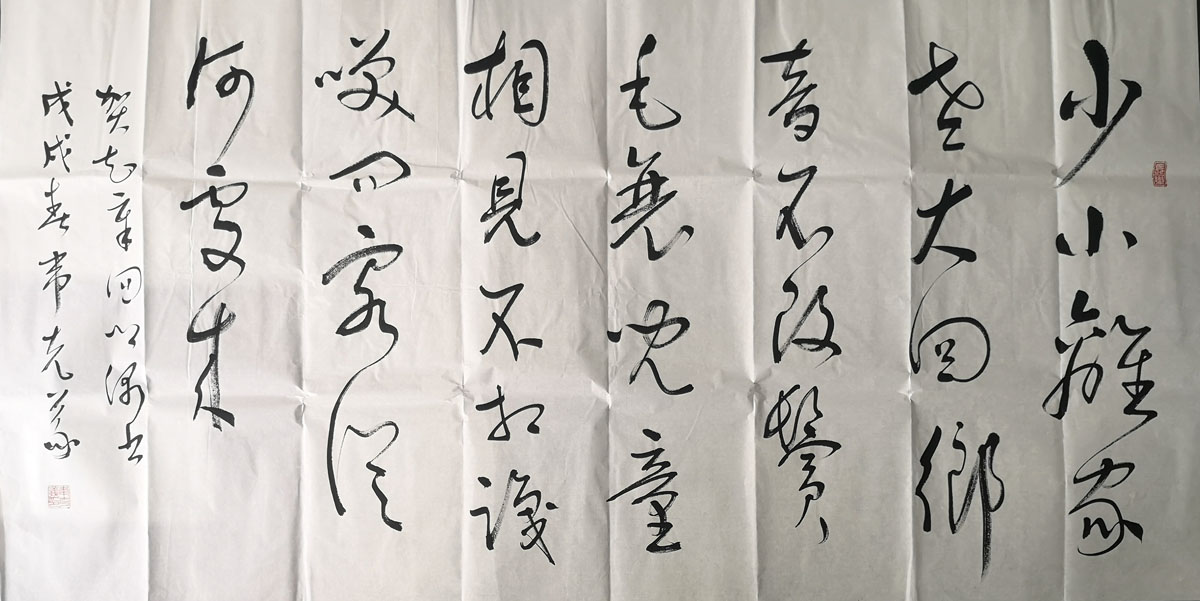 少小離家
老大回鄉
音无改鬢
毛衰兒童
相見不相識
咲問客從
何處來
賀知章回鄉偶書
戊戌春韦克義